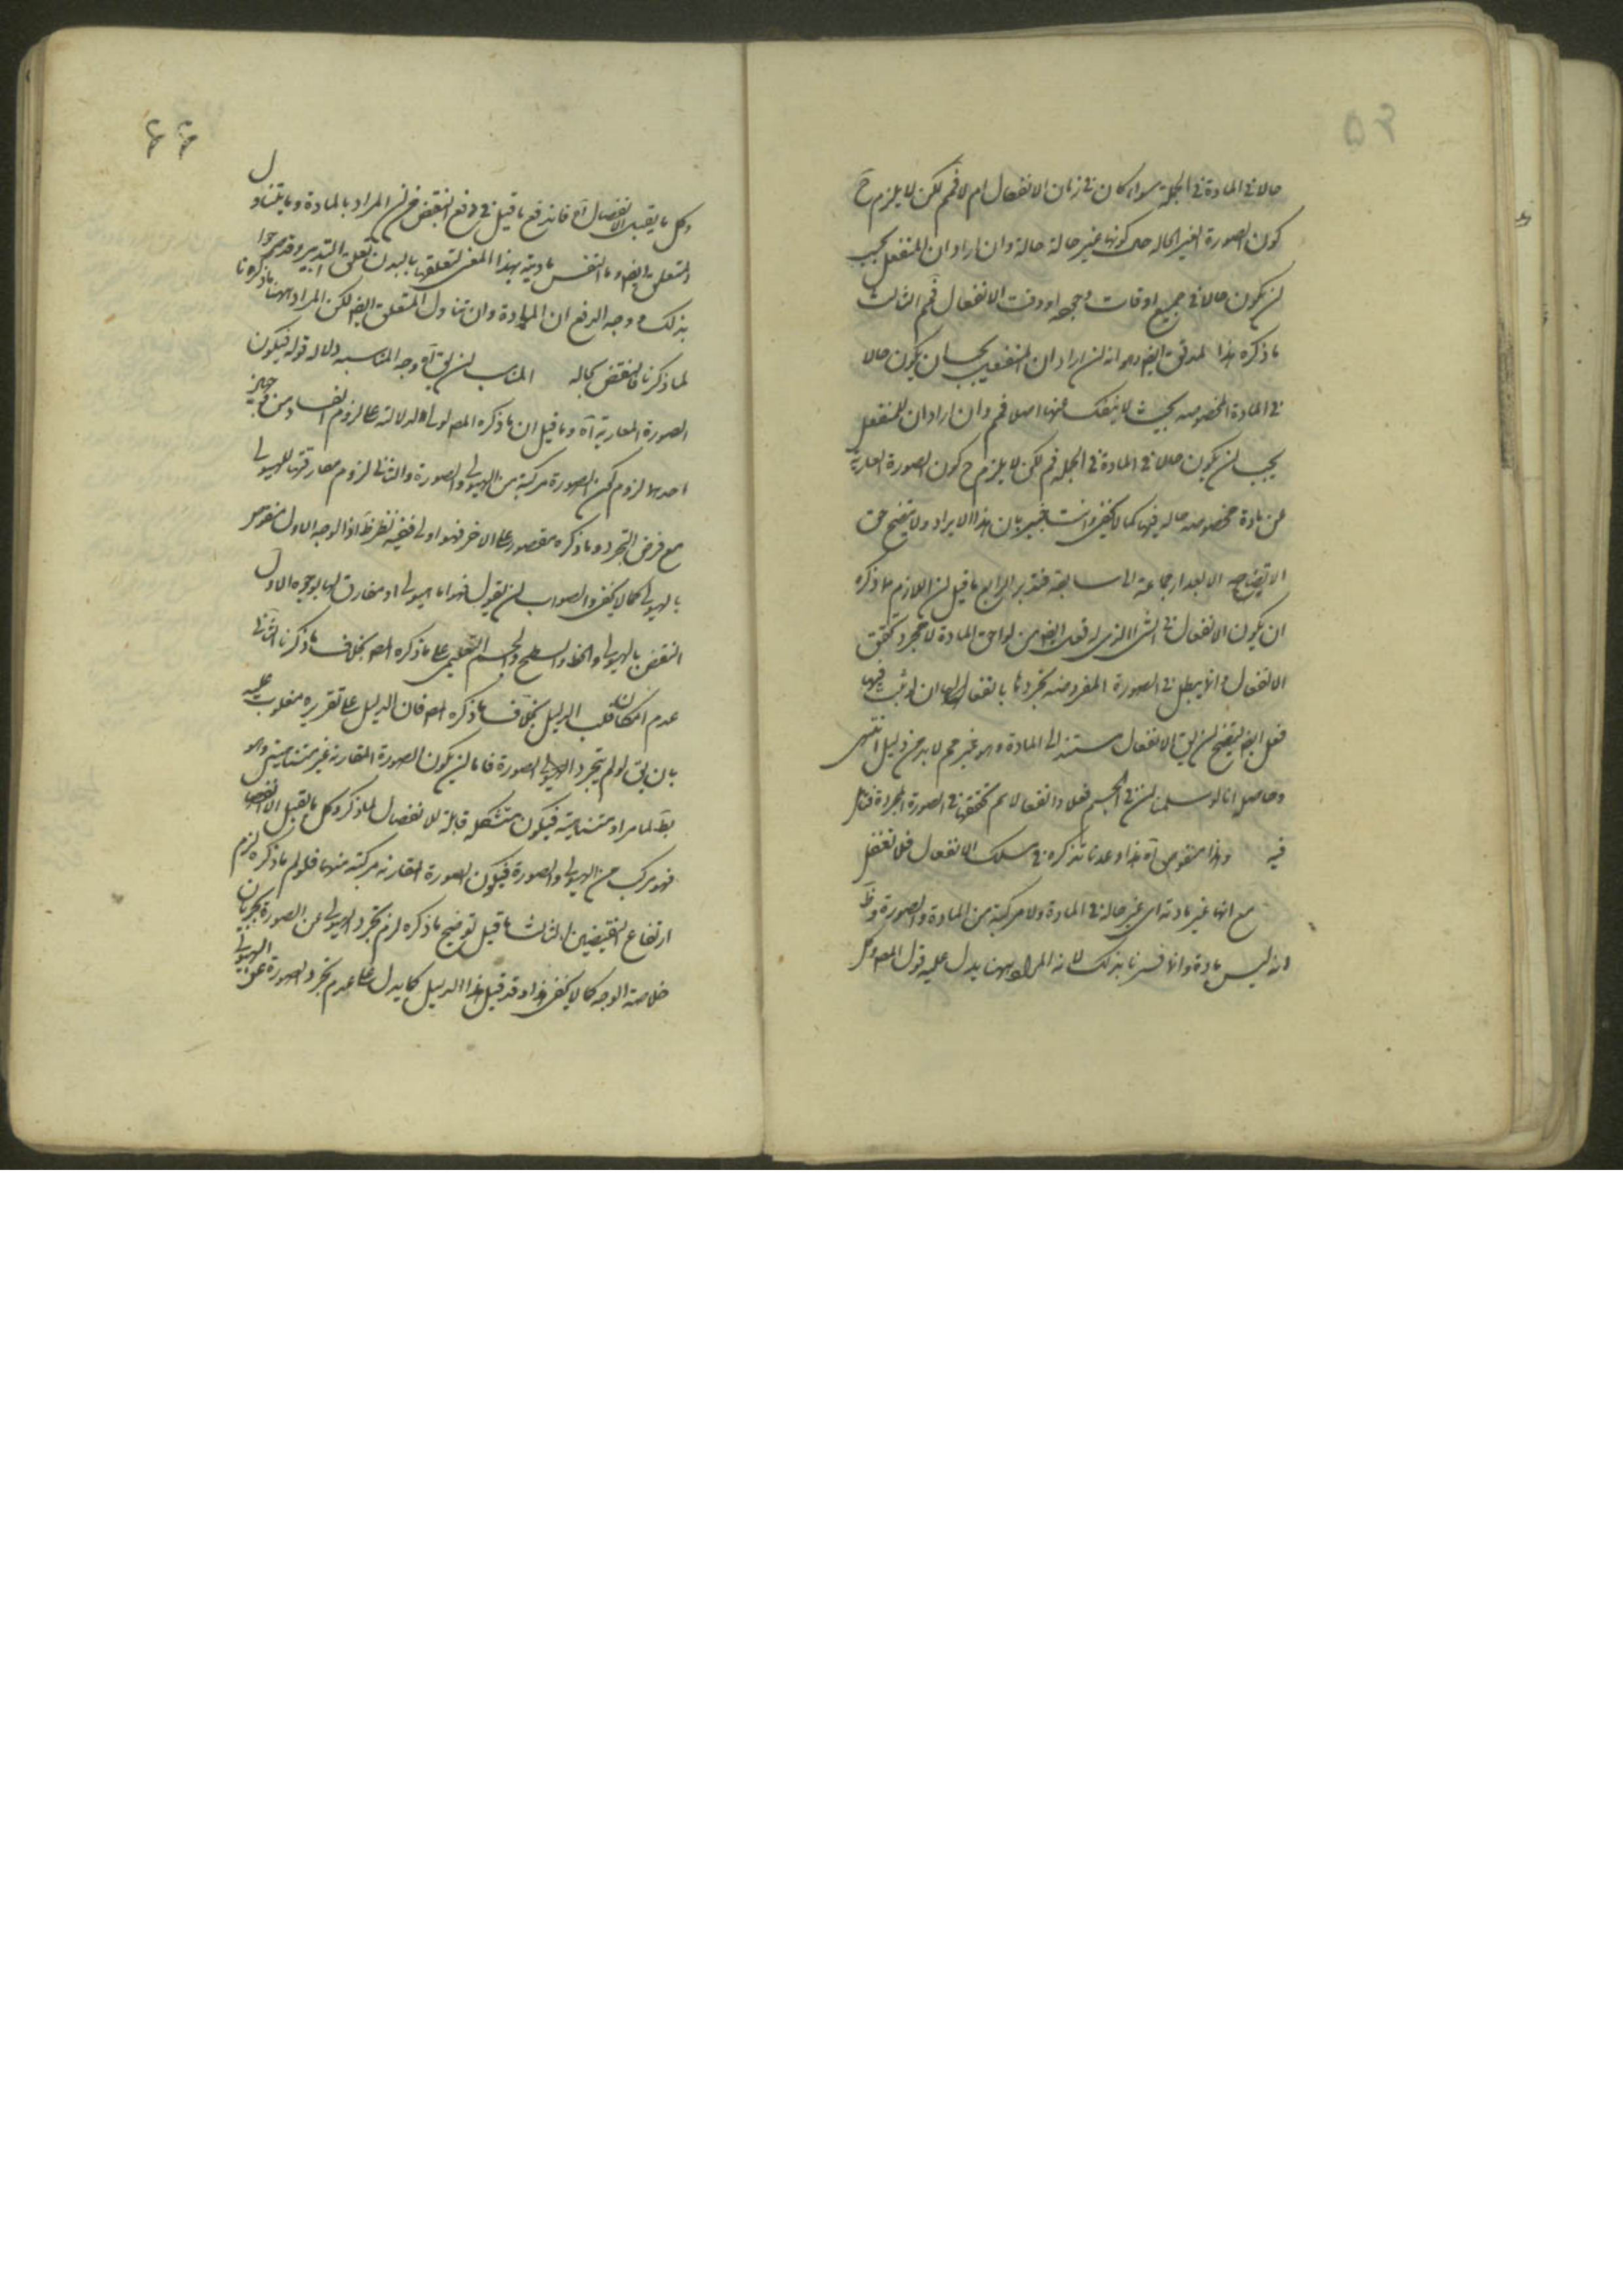 ۵۲
حالا فی المادة فی الجملة سواء کان فی زمان الانفعال ام لا فمم لکن لا یلزم ح
کون الصورة الغیر الحالة حال کونها غیر حالة حالة وان اراد ان المنفعل یجب
ان یکون حالا فی جمیع اوقات وجوده او وقت الانفعال فمم الثالث
ما ذکره هذا المدقق ایضا وهو انه ان اراد ان المنفعل یجب ان یکون حالا
فی المادة المخصوصه بحیث لا ینفک عنها اصلا فمم وان اراد ان المنفعل
یجب ان یکون حالا فی المادة فی الجملة فمم لکن لا یلزم ح کون الصورة العاریة
عن مادة مخصوصه حالیه فیها کما لا یخفی وانت خبیر بان هذا الایراد ولا یتضح حق
الاتضاح الا بعد ارجاعه الی سابقه فتدبر الرابع ما قیل ان اللازم مما ذکره
ان یکون الانفعال فی الشیء الذی له فعل ایضا من لواحق المادة لا مجرد تحقق
الانفعال وانما یبطل فی الصورة المفروضه تجردها بانفعالها ان لو ثبت فیها
فعل ایضا لیتضح ان یق الانفعال مستند الی المادة وهو غیر مم لا بد من دلیل انتهی
وحاصله انا لو سلمنا ان فی الجسم فعلا وانفعالا لم تحققها فی الصورة المجردة فتامل
فیه وهذا منقوض اه هذا وعدنا نذکره فی مسلک الانفعال فلا تغفل
مع انها غیر مادته ای غیر حالة فی المادة ولا مرکبة من المادة والصورة وظ
انه لیس مادة وانما فسرنا بذلک لانه المراد ههنا یدل علیه قول المصر وکل
۶۶
وکل ما یقبل الانفصال اه فاندفع ما قیل فی دفع النقض من ان المراد بالمادة وما یتناول
المتعلق ایضا وما النفس مادیة بهذا المعنی لتعلقها بالبدن تعلق التدبیر وقد صرحوا
بذلک ووجه الدفع ان المادة وان تناول المتعلق ایضا لکن المراد ههنا ما ذکرنا
لما ذکرنا فالنقض بحاله المناسب ان یق اه وجه المناسبه دلالة قوله فیکون
الصورة العاریة اه وما قیل ان ما ذکره المصر اولی لدلالته علی لزوم الفساد من وجهین
احدهما لزوم کون الصورة مرکبة من الهیولی والصورة والثانی لزوم مقارنتها للهیولی
مع فرض التجرد وما ذکره مقصور علی الاخر فهو اولی ففیه نظر ظ اذ الوجه الاول منقوض
بالهیولی کما لا یخفی والصواب ان یقول فهو اما هیولی او مفارق لها بوجوه الاول
النقض بالهیولی والخط والسطح والجسم التعلیمی علی ما ذکره المصر بخلاف ما ذکرنا الثانی
عدم امکان قلب الدلیل بخلاف ما ذکره المصر فان الدلیل علی تقریره مقلوب علیه
بان یق لو لم یتجرد الهیولی الصورة فاما ان یکون الصورة المقارنة غیر متناهیة وهو
بط لما مر او متناهیة فیکون متشکله قابلة للانفصال لما ذکر وکل ما یقبل الانفصال
فهو مرکب من الهیولی والصورة فیکون الصورة المقارنة مرکبة منهما فلو لم ما ذکره لزم
ارتفاع النقیضین الثالث ما قیل توضیح ما ذکره لزم تجرد الهیولی عن الصورة بجریان
خلاصة الوجه کما لا یخفی هذا وقد قیل هذا الدلیل کما یدل علی عدم تجرد الصورة عن الهیولی